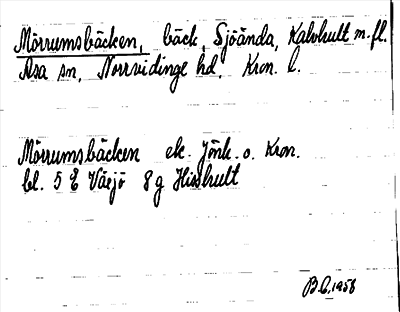 Mörrumsbäcken, bäck, Sjöända, Kalvhult m. fl.
Asa sn, Norrvidinge hd, Kron. l.
Mörrumsbäcken ek. Jönk. o. Kron.
bl. 5 E Växjö 8 g Hisshult
B.C. 1958